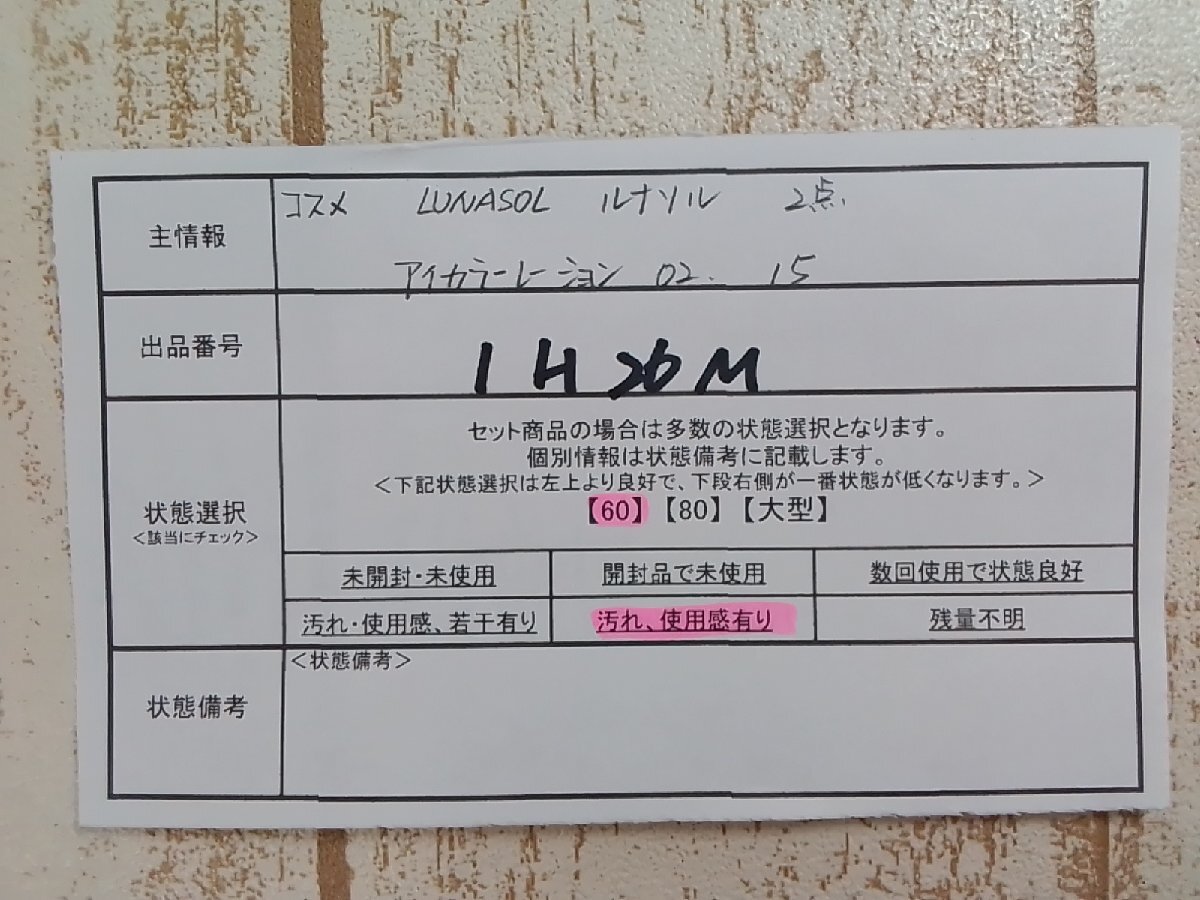 主情報
コスメ LUNASOL ルナソル 2点.
アイカラーレーション 02. 15
出品番号
1H26M
状態選択
<該当にチェック>
セット商品の場合は多数の状態選択となります。
個別情報は状態備考に記載します。
<下記状態選択は左上より良好で、下段右側が一番状態が低くなります。>
【60】【80】【大型】
未開封・未使用 開封品で未使用 数回使用で状態良好
汚れ・使用感、若干有り 汚れ、使用感有り 残量不明
状態備考
<状態備考>